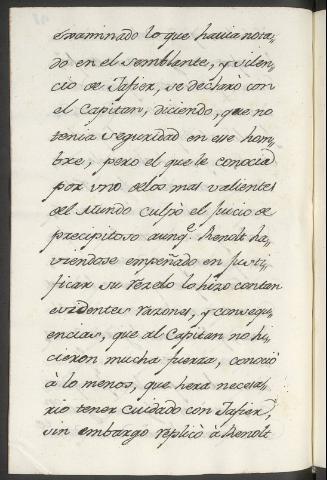 examinado lo que havia nota,,
do en el semblante, y silen,,
cio de Jafier, se declarò con
el Capitan, diciendo, que no
tenia seguridad en ese hom,,
bre, pero el que le conocia
por uno de los mas valientes
del Mundo culpò el Juicio de
precipitoso aunq.e Renolt ha,,
viendose empeñado en Justi,,
ficar su rezelo lo hizo con tan
evidentes razones, y consequ,,
encias, que al Capitan no hi,,
cieron mucha fuerza, conociò
à lo menos, que hera necesa,,
rio tener cuidado con Jafier,
sin embargo replicò à Renolt